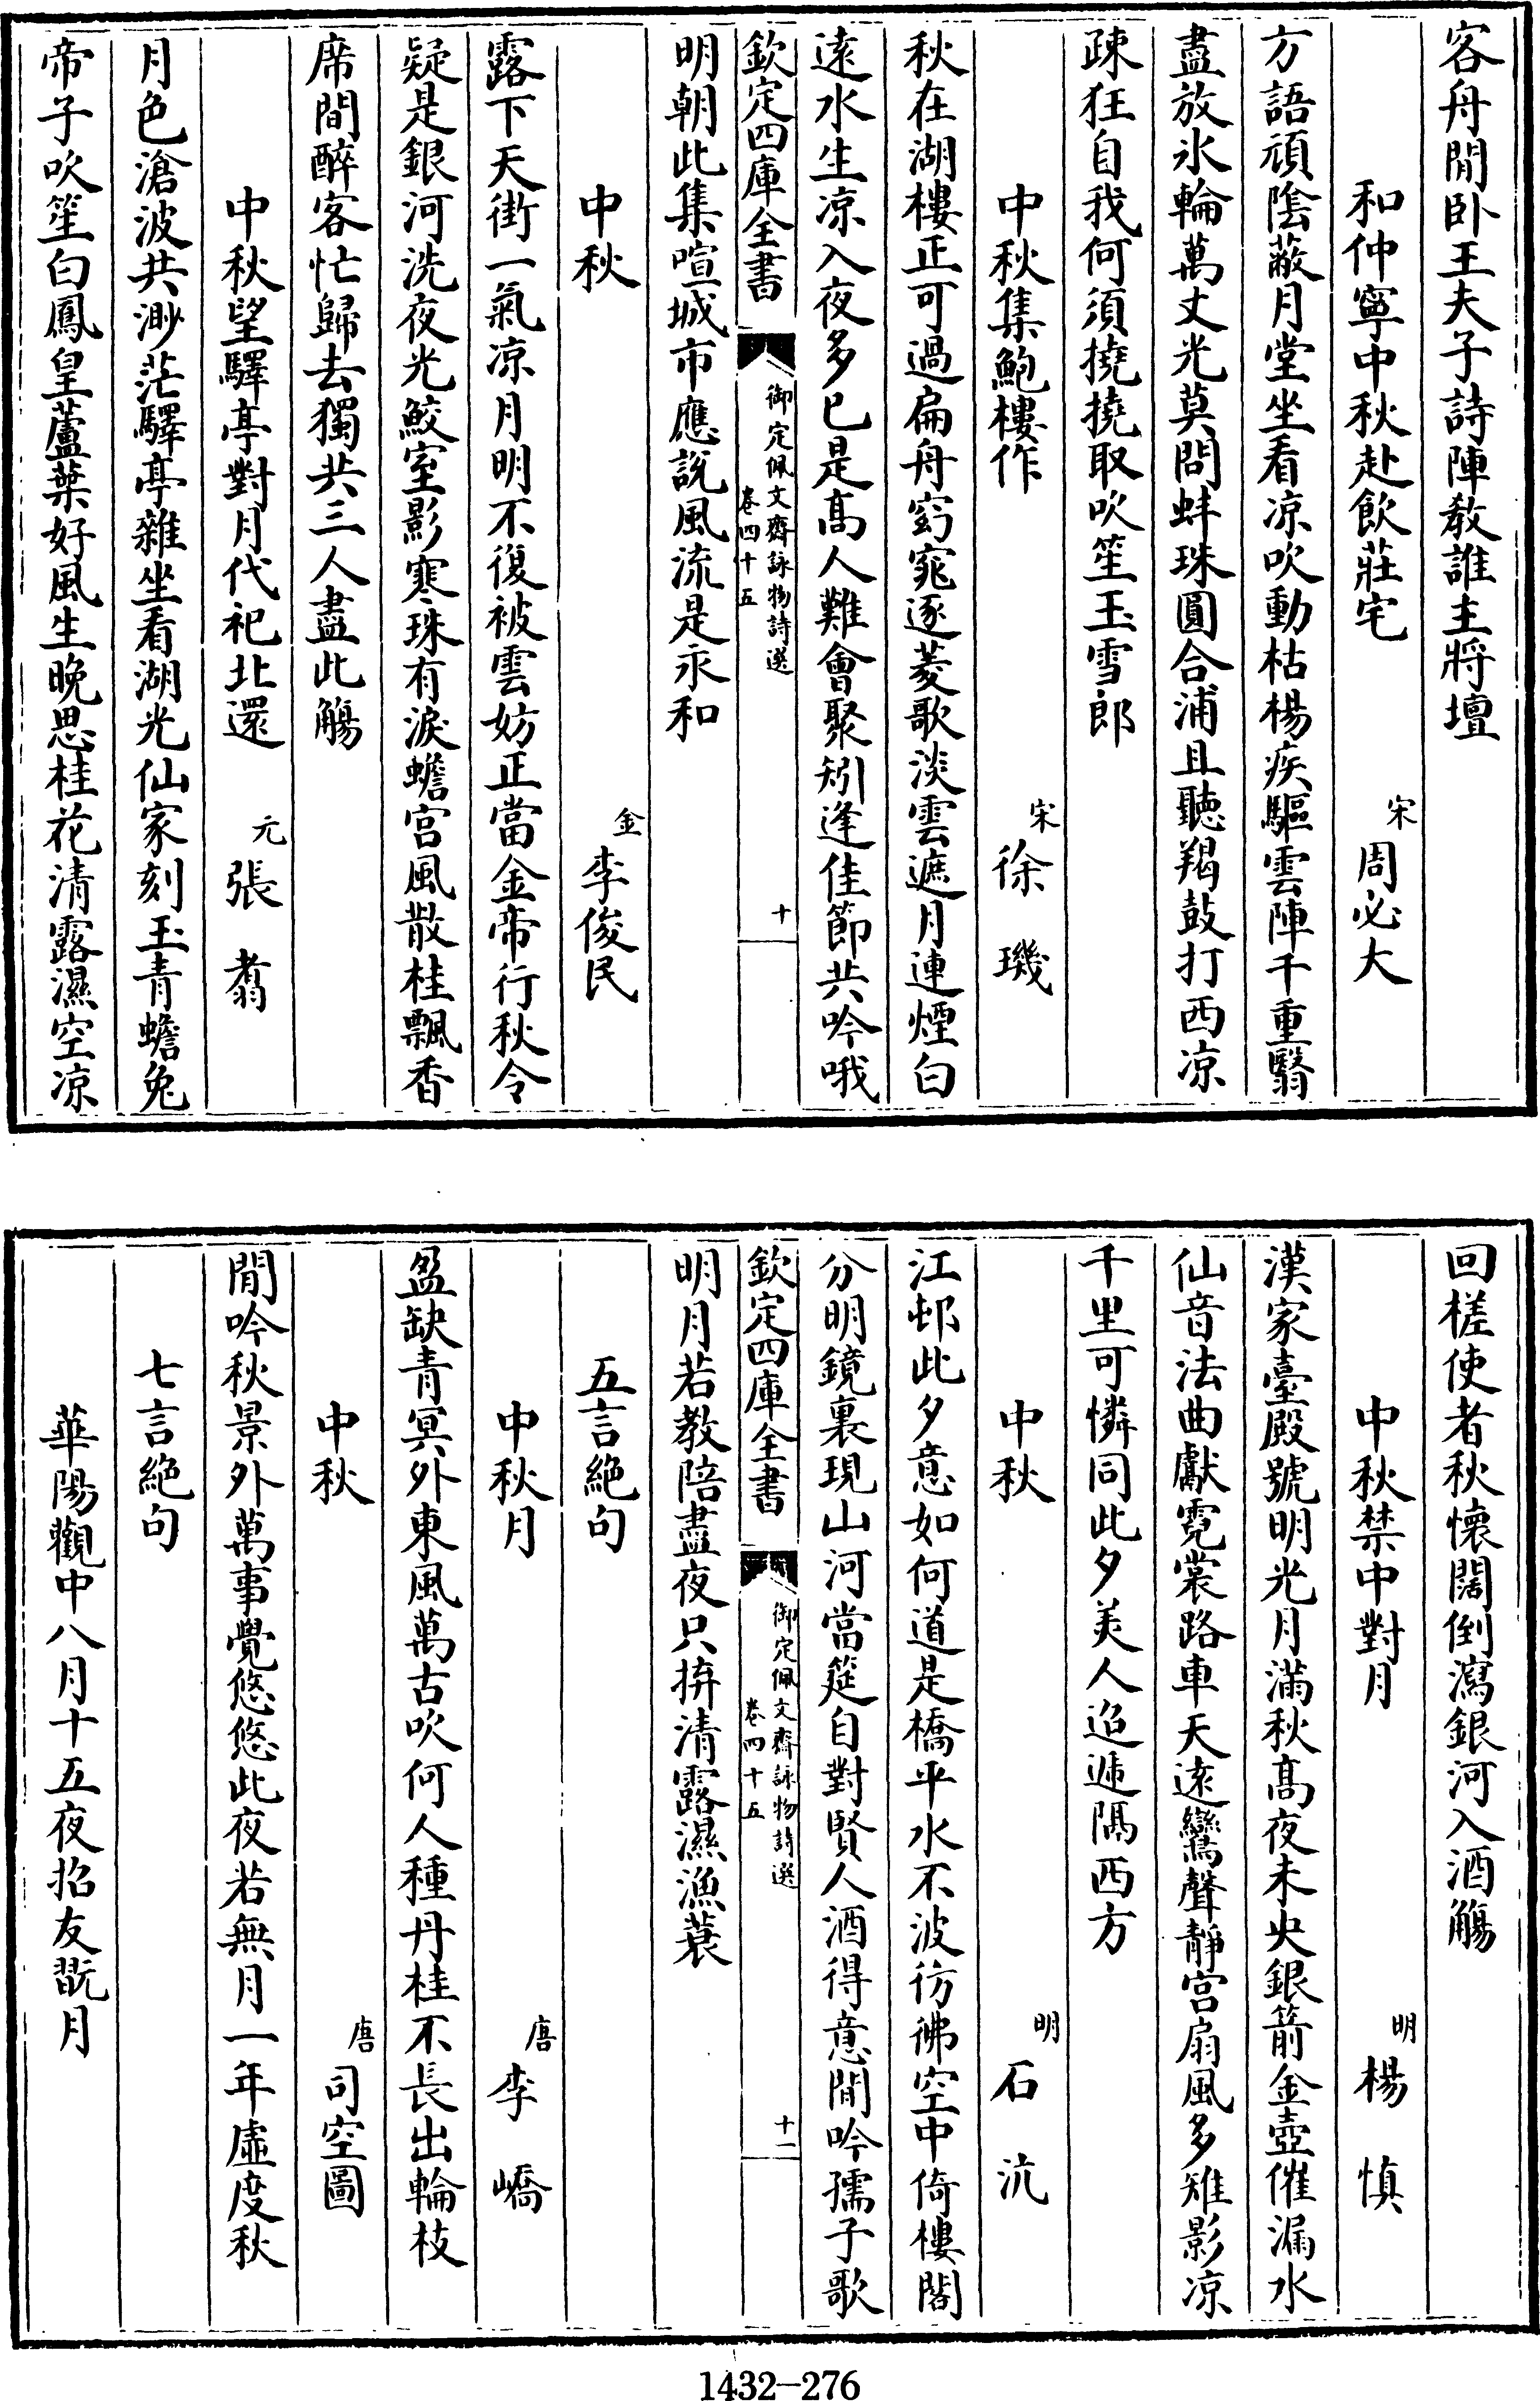 客舟閒卧王夫子詩陣教誰主將壇
和仲寧中秋赴飲莊宅 宋 周必大
方語頑陰蔽月堂坐看凉吹動枯楊疾驅雲陣千重翳
盡放氷輪萬丈光莫問蚌珠圓合浦且聽羯鼓打西凉
疎狂自我何須撓撓取吹笙玉雪郎
中秋集鮑樓作 宋 徐璣
秋在湖樓正可過扁舟窈窕逐菱歌淡雲遮月連煙白
遠水生凉入夜多已是髙人難會聚矧逢佳節共吟哦
欽定四庫全書 御定佩文齋詠物詩選 卷四十五 十
明朝此集喧城市應說風流是永和
中秋 金 李俊民
露下天街一氣凉月明不復被雲妨正當金帝行秋令
疑是銀河洗夜光鮫室影寒珠有淚蟾宫風散桂飄香
席間醉客忙歸去獨共三人盡此觴
中秋望驛亭對月代祀北還 元 張翥
月色滄波共渺茫驛亭雜坐看湖光仙家刻玉青蟾兔
帝子吹笙白鳳皇蘆葉好風生晚思桂花清露濕空凉
回槎使者秋懷闊倒瀉銀河入酒觴
中秋禁中對月 明 楊慎
漢家臺殿號明光月滿秋髙夜未央銀箭金壺催漏水
仙音法曲獻霓裳路車天遠鸞聲靜宫扇風多雉影凉
千里可憐同此夕美人迢遞隔西方
中秋 明 石沆
江邨此夕意如何道是橋平水不波彷彿空中倚樓閣
分明鏡裏現山河當筵自對賢人酒得意閒吟孺子歌
欽定四庫全書 御定佩文齋詠物詩選 卷四十五 十一
明月若教陪盡夜只拚清露濕漁蓑
五言絶句
中秋月 唐 李嶠
盈缺青冥外東風萬古吹何人種丹桂不長出輪枝
中秋 唐 司空圖
閒吟秋景外萬事覺悠悠此夜若無月一年虛度秋
七言絶句
華陽觀中八月十五夜招友翫月
1432-276